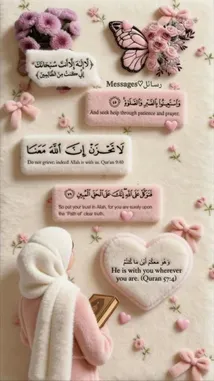 ﴿لَا إِلَٰهَ إِلَّا أَنْتَ سُبْحَانَكَ
إِنِّي كُنْتُ مِنَ الظَّالِمِينَ﴾
Messages♡رسائل
وَاسْتَعِينُوا بِالصَّبْرِ وَالصَّلَاةِ
And seek help through patience and prayer.
لَا تَحْزَنْ إِنَّ اللَّهَ مَعَنَا
Do not grieve; indeed Allah is with us. Qur'an 9:40
فَتَوَكَّلْ عَلَى اللَّهِ إِنَّكَ عَلَى الْحَقِّ الْمُبِينِ
So put your trust in Allah, for you are surely upon
the "Path of" clear truth.
وَهُوَ مَعَكُمْ أَيْنَ مَا كُنْتُمْ
He is with you wherever
you are. (Quran 57:4)